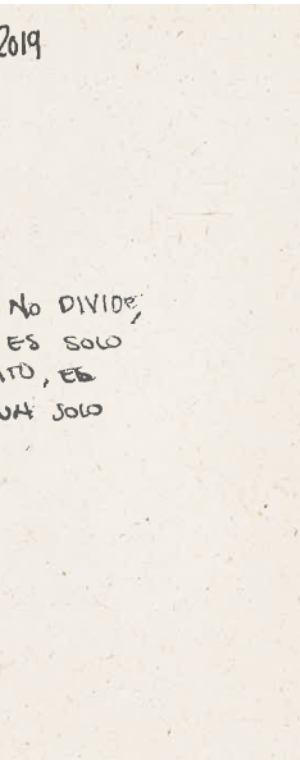 2019
No DIVIDE,
ES SOLO
, ES
SOLO